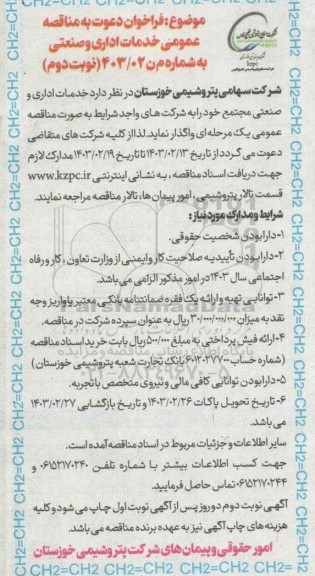 موضوع: فراخوان دعوت به مناقصه
عمومی خدمات اداری و صنعتی
به شماره من ۴۰۳/۰۲ (نوبت دوم)
kzpc
شرکت سهامی پتروشیمی خوزستان در نظر دارد خدمات اداری و
صنعتی مجتمع خود را به شرکت های واجد شرایط به صورت مناقصه
عمومی یک مرحله ای واگذار نماید. لذا از کلیه شرکت های متقاضی
دعوت می گردد از تاریخ ۱۴۰۳/۰۲/۱۳ تا تاریخ ۱۴۰۳/۰۲/۱۹ مدارک لازم
جهت دریافت اسناد مناقصه، به نشانی اینترنتی www.kzpc.ir
قسمت تالار پتروشیمی، امور پیمان ها، تالار مناقصه مراجعه نمایند.
شرایط و مدارک مورد نیاز:
۱-دارا بودن شخصیت حقوقی.
۲-دارا بودن تأییدیه صلاحیت کار و ایمنی از وزارت تعاون، کار و رفاه
اجتماعی سال ۱۴۰۳ در امور مذکور الزامی می باشد.
۳-توانایی تهیه و ارائه یک فقره ضمانتنامه بانکی معتبر یا واریز وجه
نقد به میزان ۲۰/۰۰۰/۰۰۰/۰۰۰ ریال به عنوان سپرده شرکت در مناقصه.
۴-ارائه فیش پرداختی به مبلغ ۵۰۰/۰۰۰ ریال بابت خرید اسناد مناقصه
(شماره حساب ۶۱۳۰۲۷۷۰۰ بانک تجارت شعبه پتروشیمی خوزستان)
۵-دارا بودن توانایی کافی مالی و نیروی متخصص با تجربه.
۶-تاریخ تحویل پاکات ۱۴۰۳/۰۲/۲۶ و تاریخ بازگشایی ۱۴۰۳/۰۲/۲۷
می باشد.
سایر اطلاعات و جزئیات مربوط در اسناد مناقصه آمده است.
جهت کسب اطلاعات بیشتر با شماره تلفن ۰۶۱۵۲۱۷۰۲۴۰ و
۰۶۱۵۲۱۷۰۲۴۴ تماس حاصل فرمایید.
آگهی نوبت دوم دو روز پس از آگهی نوبت اول چاپ می شود و کلیه
هزینه های چاپ آگهی نیز به عهده برنده مناقصه می باشد.
امور حقوقی و پیمان های شرکت پتروشیمی خوزستان